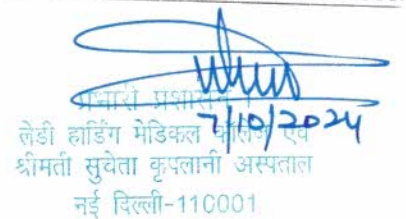 प्रभारी प्रशासन
7/10/2024
लेडी हार्डिंग मेडिकल कॉलेज एवं
श्रीमती सुचेता कृपलानी अस्पताल
नई दिल्ली-110001